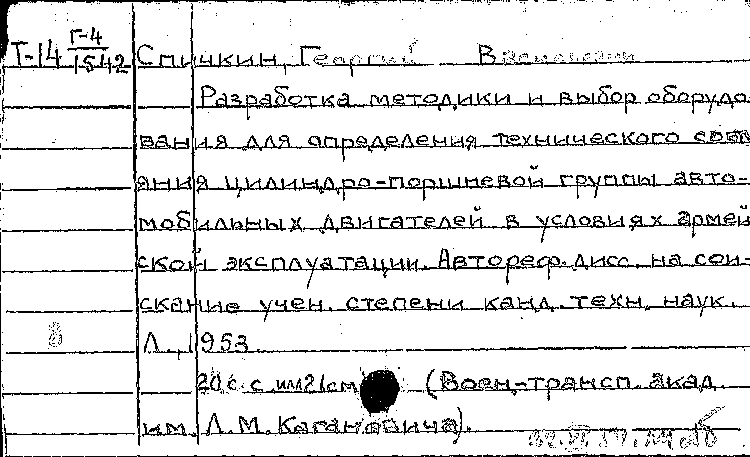 Т-14 Г-4
1542 Спичкин, Георгий Васильевич
Разработка методики и выбор оборудо
вания для определения технического состо
яния цилиндро-поршневой группы авто-
мобильных двигателей в условиях армей
ской эксплуатации. Автореф. дисс. на сои-
скание учен. степени канд. техн. наук.
Л., 1953.
20 с. с илл 21см (Воен.-трансп. акад.
им. Л. М. Кагановича).